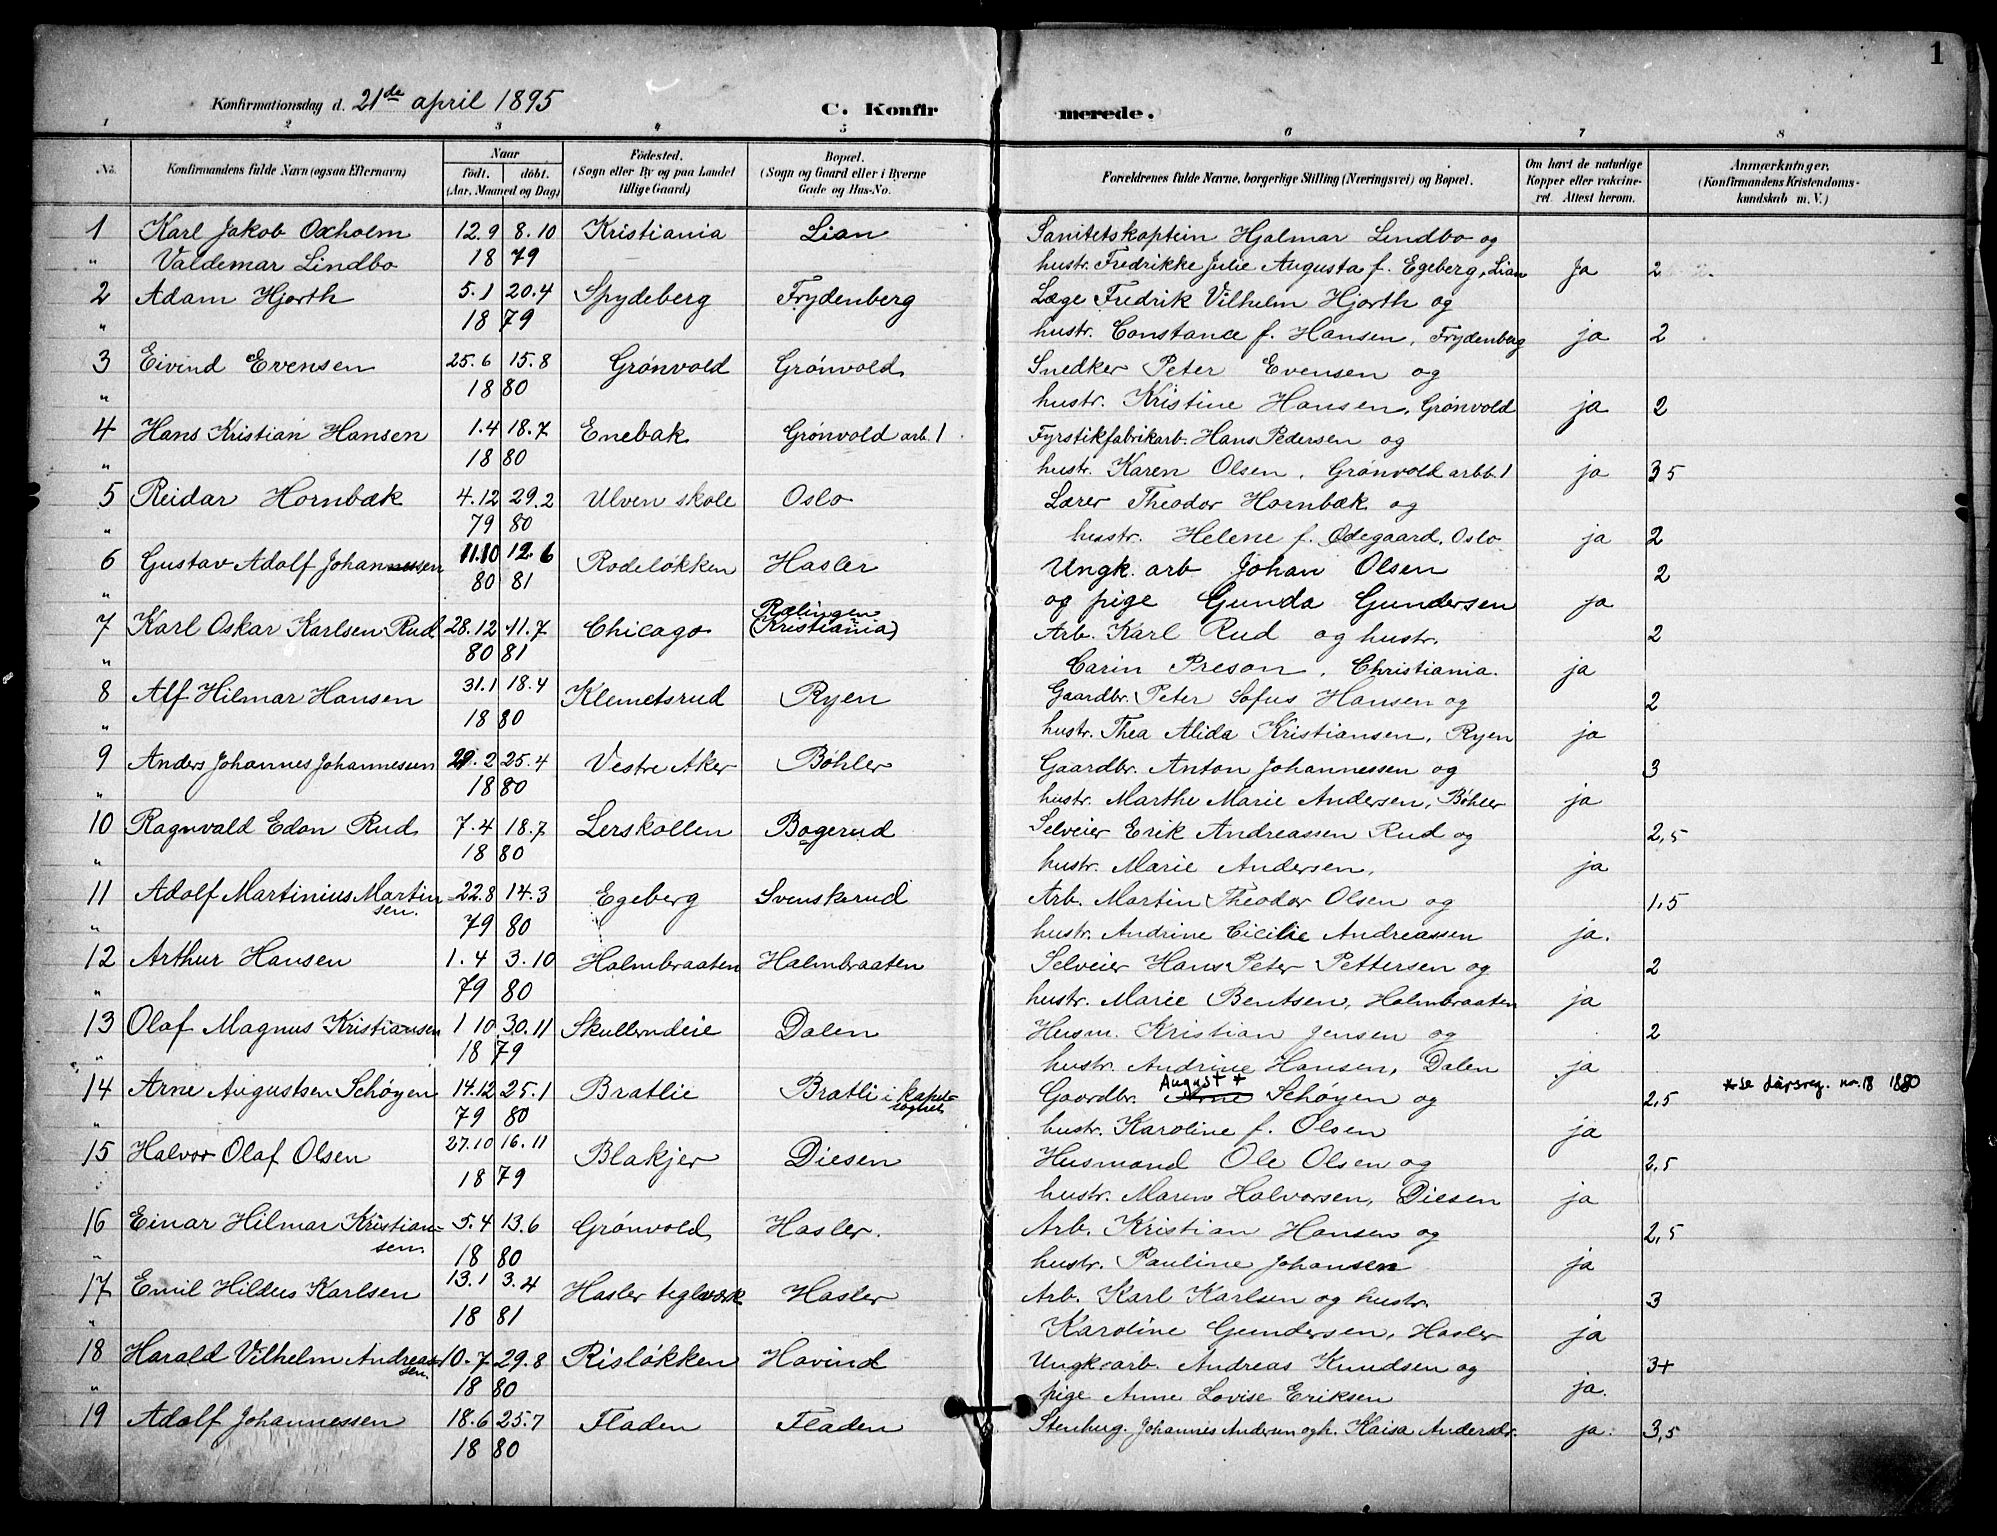 1
Konfirmationsdag d. 21de april 1895 C. Konfirmerede.
1 2 3 4 5 6 7 8
No. Konfirmandens fulde Navn (ogsaa Efternavn) Naar født. døbt. (Aar, Maaned og Dag) Fødested. (Sogn eller By og paa Landet tillige Gaard) Bopæl. (Sogn og Gaard eller i Byerne Gade og Hus-No. Forældrenes fulde Navne, borgerlige Stilling (Næringsvei) og Bopæl. Om havt de naturlige Kopper eller vakcineret. Attest herom. Anmærkninger. (Konfirmandens Kristendomskundskab m. V.)
1 Karl Jakob Oxholm 12.9 8.10 Kristiania Lian Sanitetskaptein Hjalmar Lindbo og
" Valdemar Lindbo 18 79 hustr. Fredrikke Julie Augusta f. Egeberg, Lian Ja 2
2 Adam Hjorth 5.1 20.4 Spydeberg Frydenberg Læge Fredrik Vilhelm Hjorth og
" 18 79 hustr. Constance f. Hansen, Frydenberg ja 2
3 Eivind Evensen 25.6 15.8 Grønvold Grønvold Snedker Peter Evensen og
" 18 80 hustr. Kristine Hansen, Grønvold ja 2
4 Hans Kristian Hansen 1.4 18.7 Enebak Grønvold arb. 1 Fyrstikfabrikarb. Hans Pedersen og
" 18 80 hustr. Karen Olsen, Grønvold arbb. 1 ja 3 5
5 Reidar Hornbæk 4.12 29.2 Ulven skole Oslo Lærer Theodor Hornbæk og
" 79 80 hustr. Helene f. Ødegaard, Oslo ja 2
6 Gustav Adolf Johannessen 11.10 12.6 Rodeløkken Hasler Ungk. arb Johan Olsen
" 80 81 og pige Gunda Gundersen ja 2
7 Karl Oskar Karlsen Rud 28.12 11.7 Chicago Rælingen (Kristiania) Arb. Karl Rud og hustr. 2
" 80 81 Carin Preson, Christiania. ja
8 Alf Hilmar Hansen 31.1 18.4 Klemetsrud Ryen Gaardbr. Peter Sofus Hansen og 2
" 18 80 hustr. Thea Alida Kristiansen, Ryen ja
9 Anders Johannes Johannessen 2 25.4 Vestre Aker Bøhler Gaardbr. Anton Johannessen og 3
" 18 80 hustr. Marthe Marie Andersen, Bøhler ja
10 Ragnvald Edon Rud 7.4 18.7 Lerskallen Bogerud Selveier Erik Andreassen Rud og 2,5
" 18 80 hustr. Marie Andersen, ja
11 Adolf Martinius Martinsen. 22.8 14.3 Egeberg Svenskerud Arb. Martin Theodor Olsen og 1,5
" 79 80 hustr. Andrine Cicilie Andreassen ja.
12 Arthur Hansen 1.4 3.10 Holmbraaten Holmbraaten Selveier Hans Peter Pettersen og 2
" 79 80 hustr. Marie Bentsen, Holmbraaten ja
13 Olaf Magnus Kristiansen 1 10 30.11 Skullerudeie Dalen Husm. Kristian Jensen og 2
" 18 79 hustr. Andrine Hansen, Dalen ja
14 Arne Augustsen Schøyen 14.12 25.1 Bratlie Bratli i kapelsognet Gaardbr. Arne August * Schøyen og 2,5 * se dåpsreg. nr. 18 1880
" 79 80 hustr. Karoline f. Olsen ja
15 Halvor Olaf Olsen 27.10 16.11 Blakjer Diesen Husmand Ole Olsen og 2,5
18 79 hustr. Maren Halvorsen, Diesen ja
16 Einar Hilmar Kristiansen. 5.4 13.6 Grønvold Hasler. Arb. Kristian Hansen og 2,5
" 18 80 hustr. Pauline Johansen ja
17 Emil Hildus Karlsen 13.1 3.4 Hasler teglværk Hasler Arb. Karl Karlsen og hustr. 3
" 18 81 Karoline Gundersen, Hasler ja
18 Harald Vilhelm Andreassen. 10.7 29.8 Risløkken Hovind Ungk. arb. Andreas Knudsen og 3+
" 18 80 pige Anne Lovise Eriksen ja.
19 Adolf Johannessen 18.6 25.7 Fladen Fladen Stenhug. Johannes Andersen og h. Kaisa Andersdr. ja. 3,5
18 80